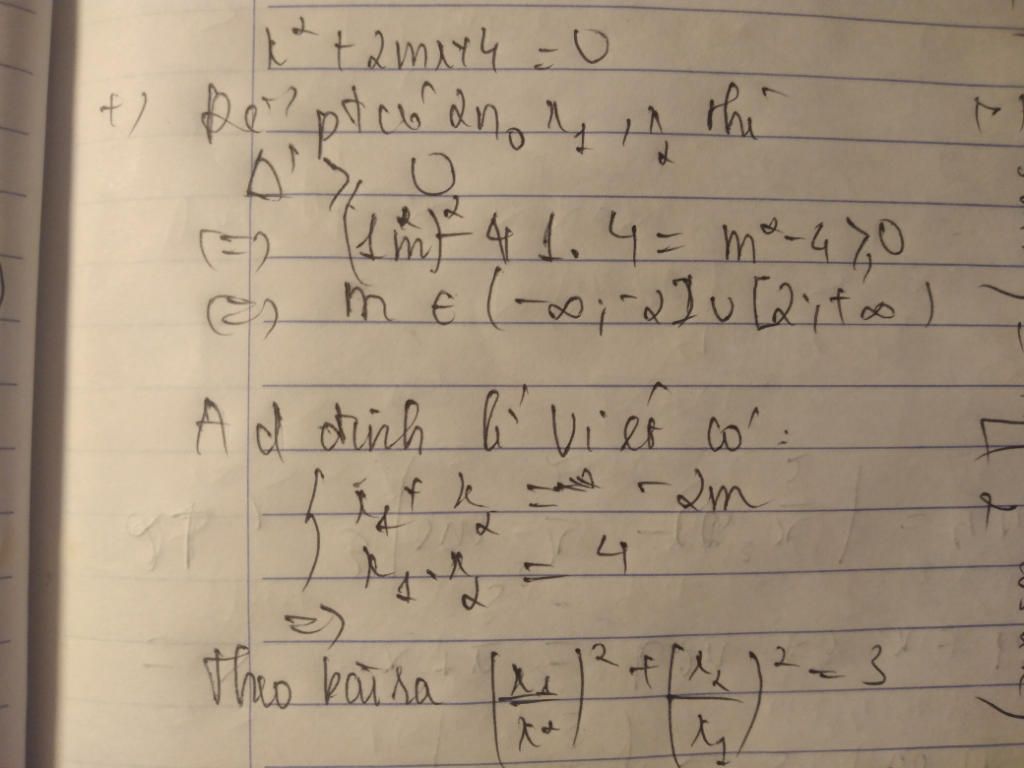 x² + 2mx + 4 = 0
+) Để pt có 2 n₀ x₁, x₂ thì
Δ' ≥ 0
(=) (1m)² - 1.4 = m² - 4 ≥ 0
(=) m ∈ (-∞; -2] ∪ [2; +∞)
Ad định lí Viét có:
{ x₁ + x₂ = -2m
x₁.x₂ = 4
=)
theo bài ra (x₁/x₂)² + (x₂/x₁)² = 3